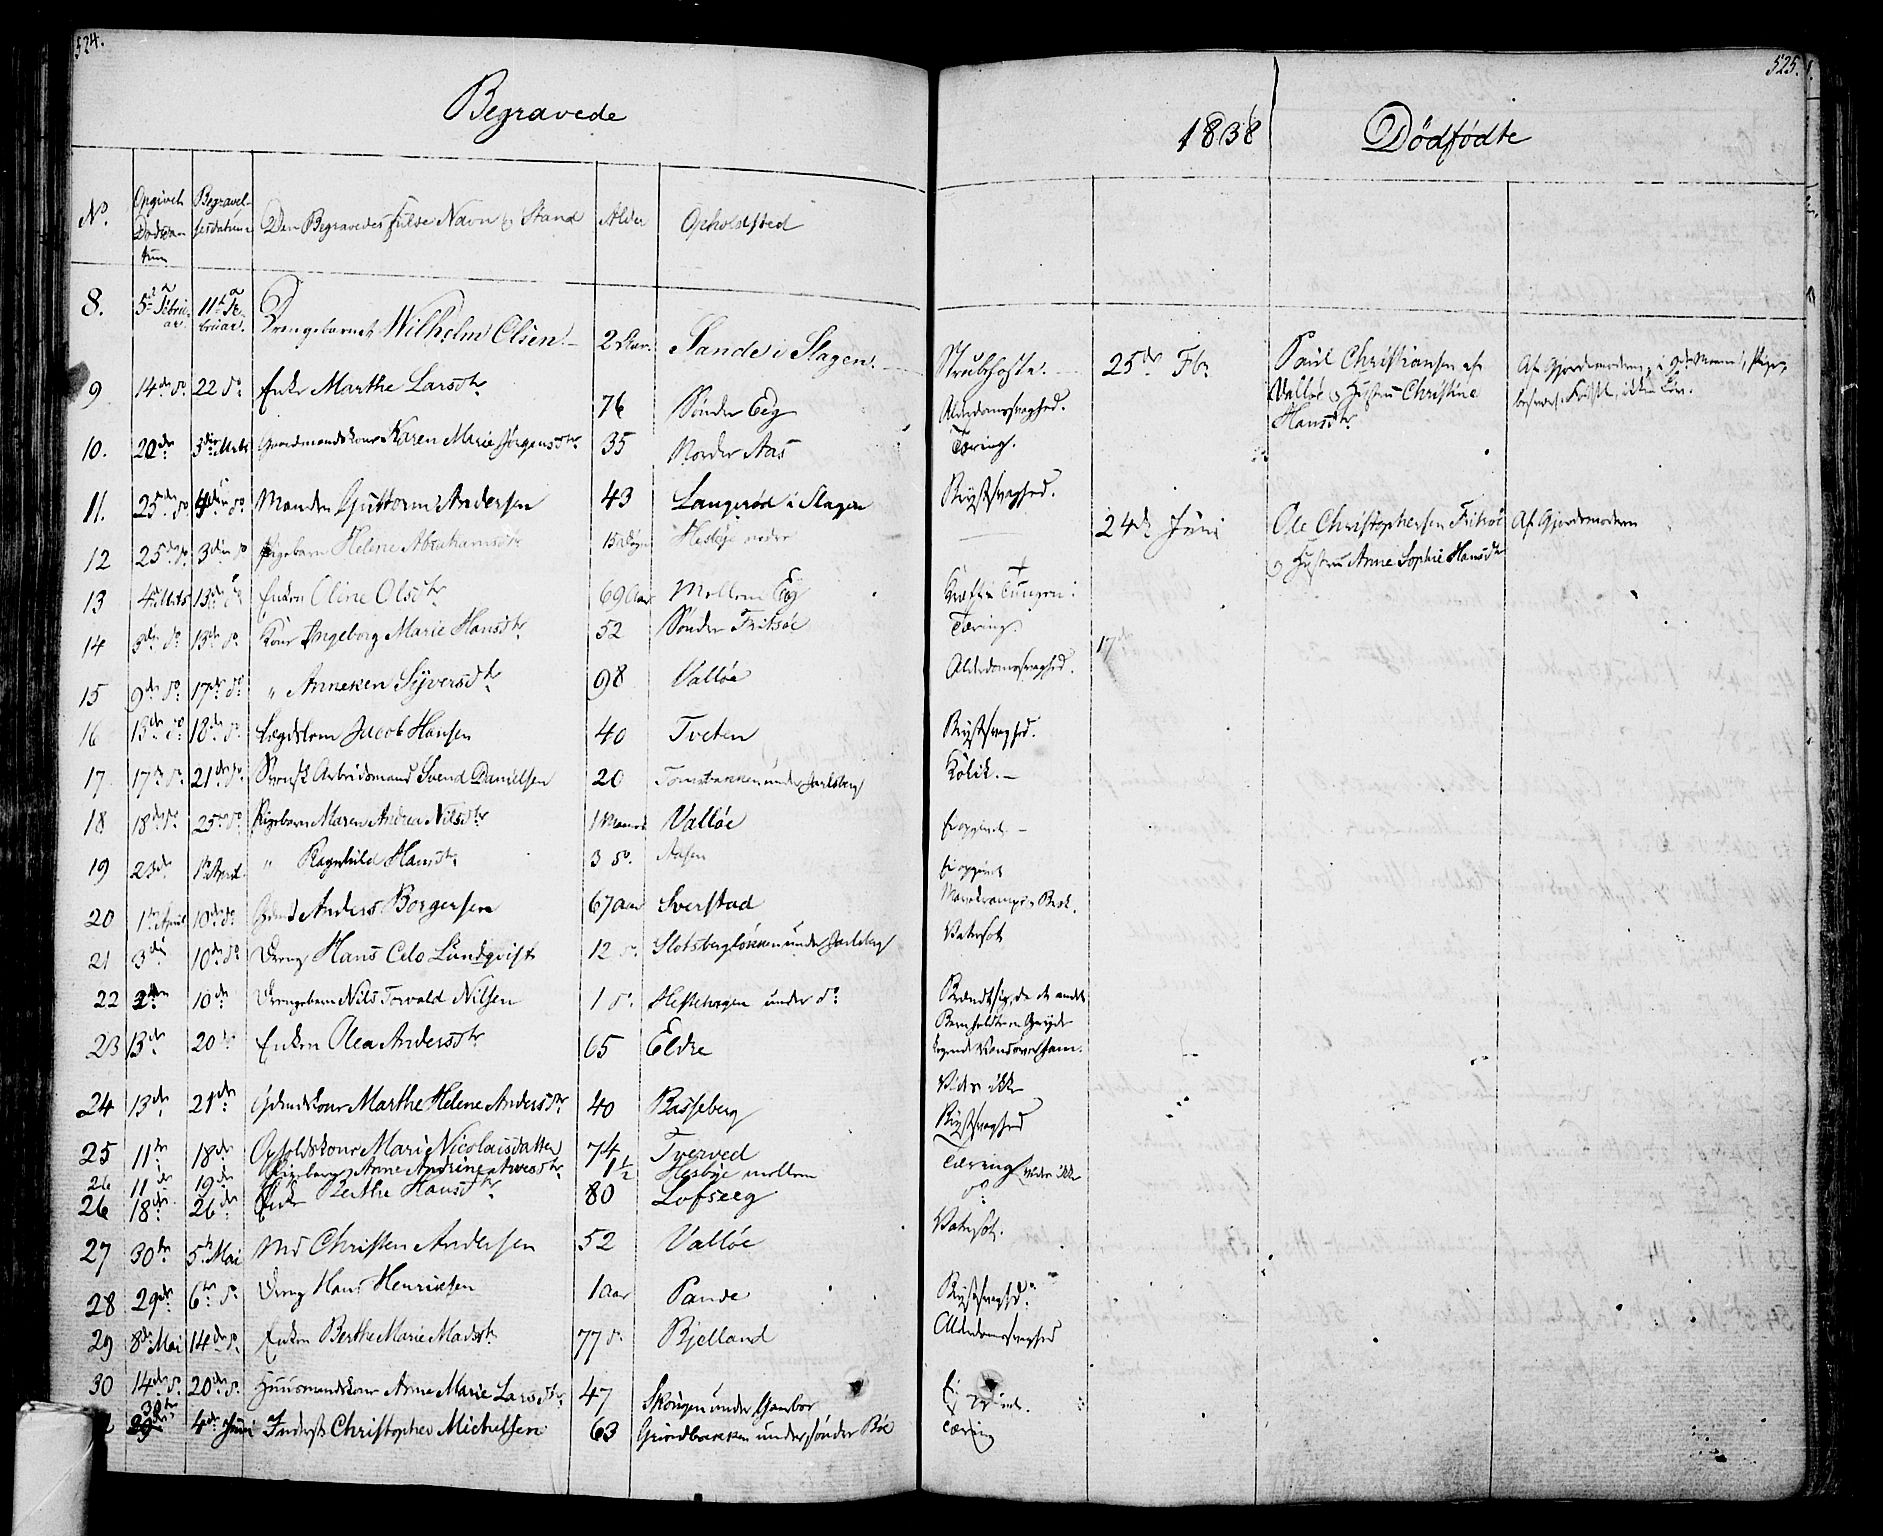 524.
Begravede
No. Opgiven Dødsdatum Begravelsesdatum Den Begravedes fulde Navn og Stand Alder Opholdsted
8. 5te Februar. 11te Februar. Drengebarnet Wilhelm Olsen. 2 Aar. Sande i Slagen. Strubehoste.
9 14de do 22 do Enke Marthe Larsdtr 76 Sønder Eeg Alderdomssvaghed.
10. 20de 3die Marts Gaardmandskone Karen Marie Jørgensdtr 35 Norder Aas Tæring.
11. 25de do 4de do Manden Guttorm Andersen 43 Langerød i Slagen Brystsvaghed.
12 25de do 3die do Pigebarn Helene Abrahamsdtr Hesbye neder
13 4de Marts 13de do Enken Oline Olsdtr 69 Aar Mellem Eeg Kræft i Tungen.
14 3die do 13de do Kone Ingeborg Marie Hansdtr 52 Sønder Fritsøe Tæring.
15 9de do 17de do " Anneken Syversdtr 98 Valløe Alderdomssvaghed.
16 13de do 18de do Lægdslem Jacob Hansen 40 Tveten Brystsvaghed.
17. 17de do 21de do Svensk Arbeidsmand Svend Danielsen 20 under Jarlsberg Kolik.
18 18de do 25de do Pigebarn Maren Andrea Nilsdtr 1 Maaned Valløe Ei opgivet
19 23de 1te April " Ragnhild Hansdtr 3 do. Aasen Ei opgivet
20 1te April 10de do Gdmd Anders Borgersen 67 aar Sverstad
21 3die 10de do Dreng Hans Celo Lundqvist 12 do Slotsbergløkken under Jarlsberg Vatersot
22 10de Drengebarn Nils Torvald Nilsen 1 do. Hestehagen under do Brændt sig, da de andre Børn holdt en Gryde kogende Vand over ham.
23 13de 20 do Enken Olea Andersdtr 65 Eldre Vides ikke
24 13de 21de Gdmdskone Marthe Helene Andersdtr 40 Basseberg Brystsvaghed
25 11te 18de Opholdskone Mari Nicolaisdatter 74 Tverved Tæring
26 11te 19de Pigebarn Anne Andrine Arvesdtr 1½ Hesbye mellem Vides ikke
26 18de 26de Enke Berthe Hansdtr 80 Lofseeg do
27 30te 5te Mai Md Christen Andersen 52 Valløe Vatersot.
28 29de 6te do Dreng Hans Henriksen 1 aar Pande Brystsvaghed.
29 8de Mai 14de do Enken Berthe Marie Madsdtr 77 do. Bjelland Alderdomssvaghed
30 14de do 20de do. Huusmandskone Anne Marie Larsdtr. 47 Skougen under Gambor
30te 29de 4de Juni Inderst Christopher Michelsen 63 Grindbakken under sønder Bøe Tæring
525.
1838 Dødfødte
25de Fbr Paul Christiansen af Valløe og Hustru Christine Hansdtr.
24de Juni Ole Christophersen Fritsøe og Hustru Anne Sophie Hansdtr Af Gjordemoderen
17de